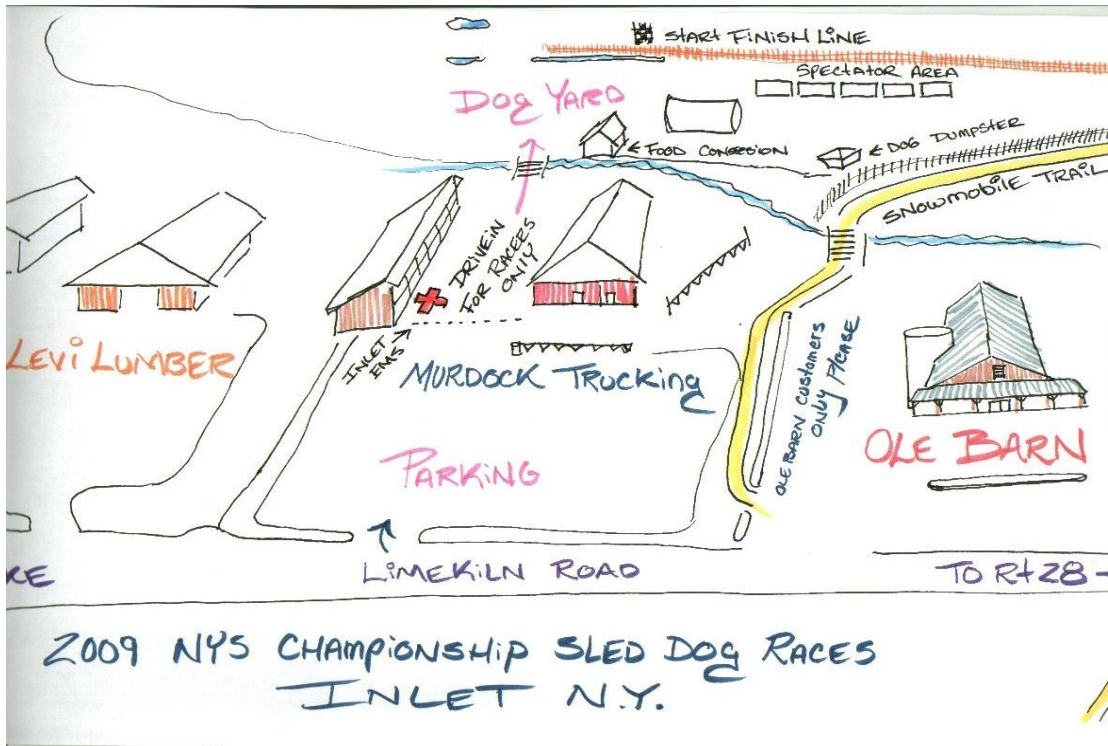 START FINISH LINE
SPECTATOR AREA
DOG YARD
← FOOD CONCESION
← DOG DUMPSTER
SNOWMOBILE TRAIL
DRIVE IN
FOR RACERS
ONLY
INLET
EMS
LEVI LUMBER
MURDOCK TRUCKING
OLE BARN CUSTOMERS
ONLY PLEASE
OLE BARN
PARKING
KE
LIMEKILN ROAD
TO Rt 28 -
2009 NYS CHAMPIONSHIP SLED DOG RACES
INLET N.Y.